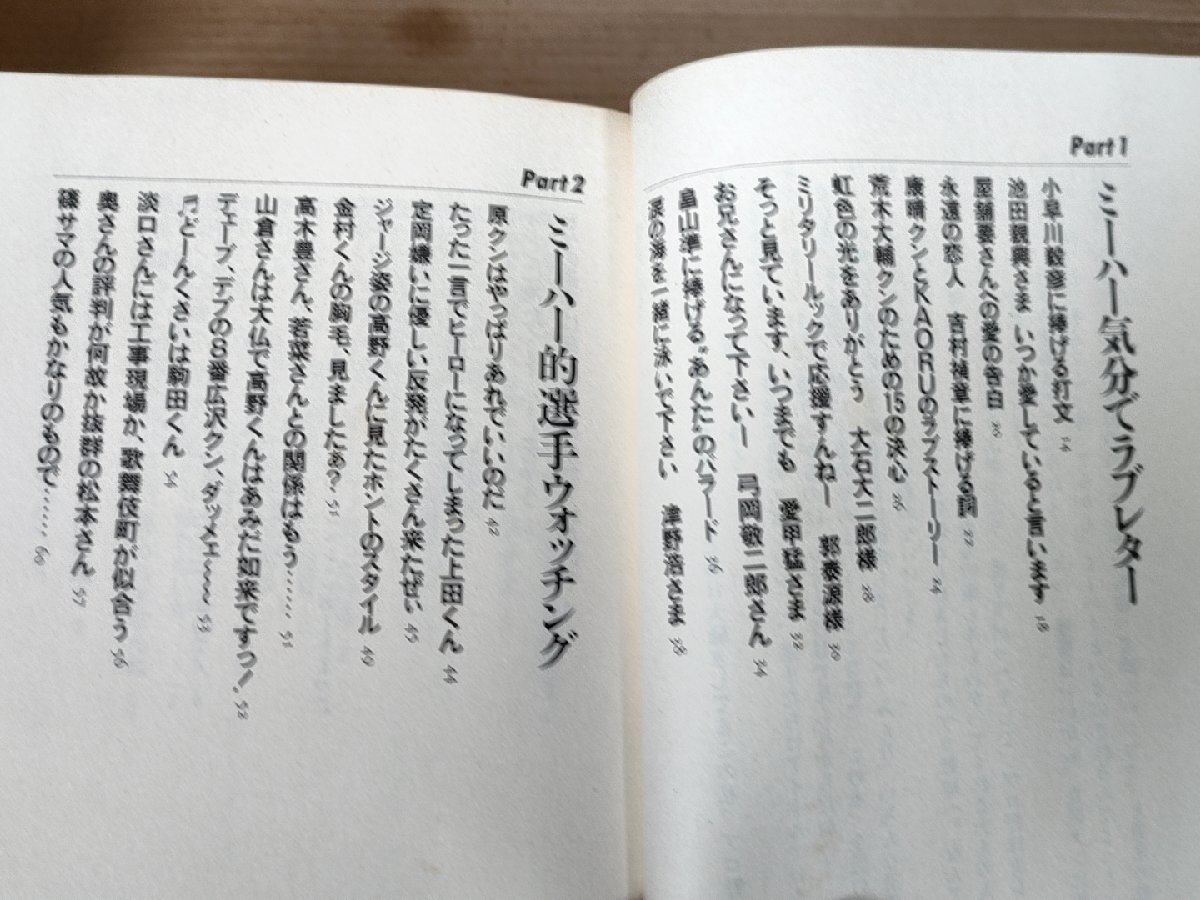 Part 1
ミーハー気分でラブレター
小早川毅彦に捧げる打文 14
池田親興さま いつか愛していると言います 18
屋鋪要さんへの愛の告白 20
永遠の恋人 吉村禎章に捧げる詞 22
康晴クンとKAORUのラブストーリー 24
荒木大輔クンのための15の決心 26
虹色の光をありがとう 大石大二郎様 28
ミリタリールックで応援すんねー 郭泰源様 30
そっと見ています、いつまでも 愛甲猛さま 32
お兄さんになって下さいー 弓岡敬二郎さん 34
畠山準に捧げる“あんた”のバラード 36
涙の海を一緒に泳いで下さい 津野浩さま 38
Part 2
ミーハー的選手ウォッチング
原クンはやっぱりあれでいいのだ 42
たった一言でヒーローになってしまった上田くん 44
定岡嫌いに優しい反発がたくさん来たぜい 45
ジャージ姿の高野くんに見たホントのスタイル 49
金村くんの胸毛、見ましたぁ? 51
高木豊さん、若菜さんとの関係はもう…… 51
山倉さんは大仏で高野くんはあみだ如来ですっ! 52
デェーブ、デブの8番広沢クン、ダッメェ〜〜 53
♬どーんくさいは駒田くん 54
淡口さんには工事現場か、歌舞伎町が似合う 56
奥さんの評判が何故か抜群の松本さん 57
篠サマの人気もかなりのもので…… 60